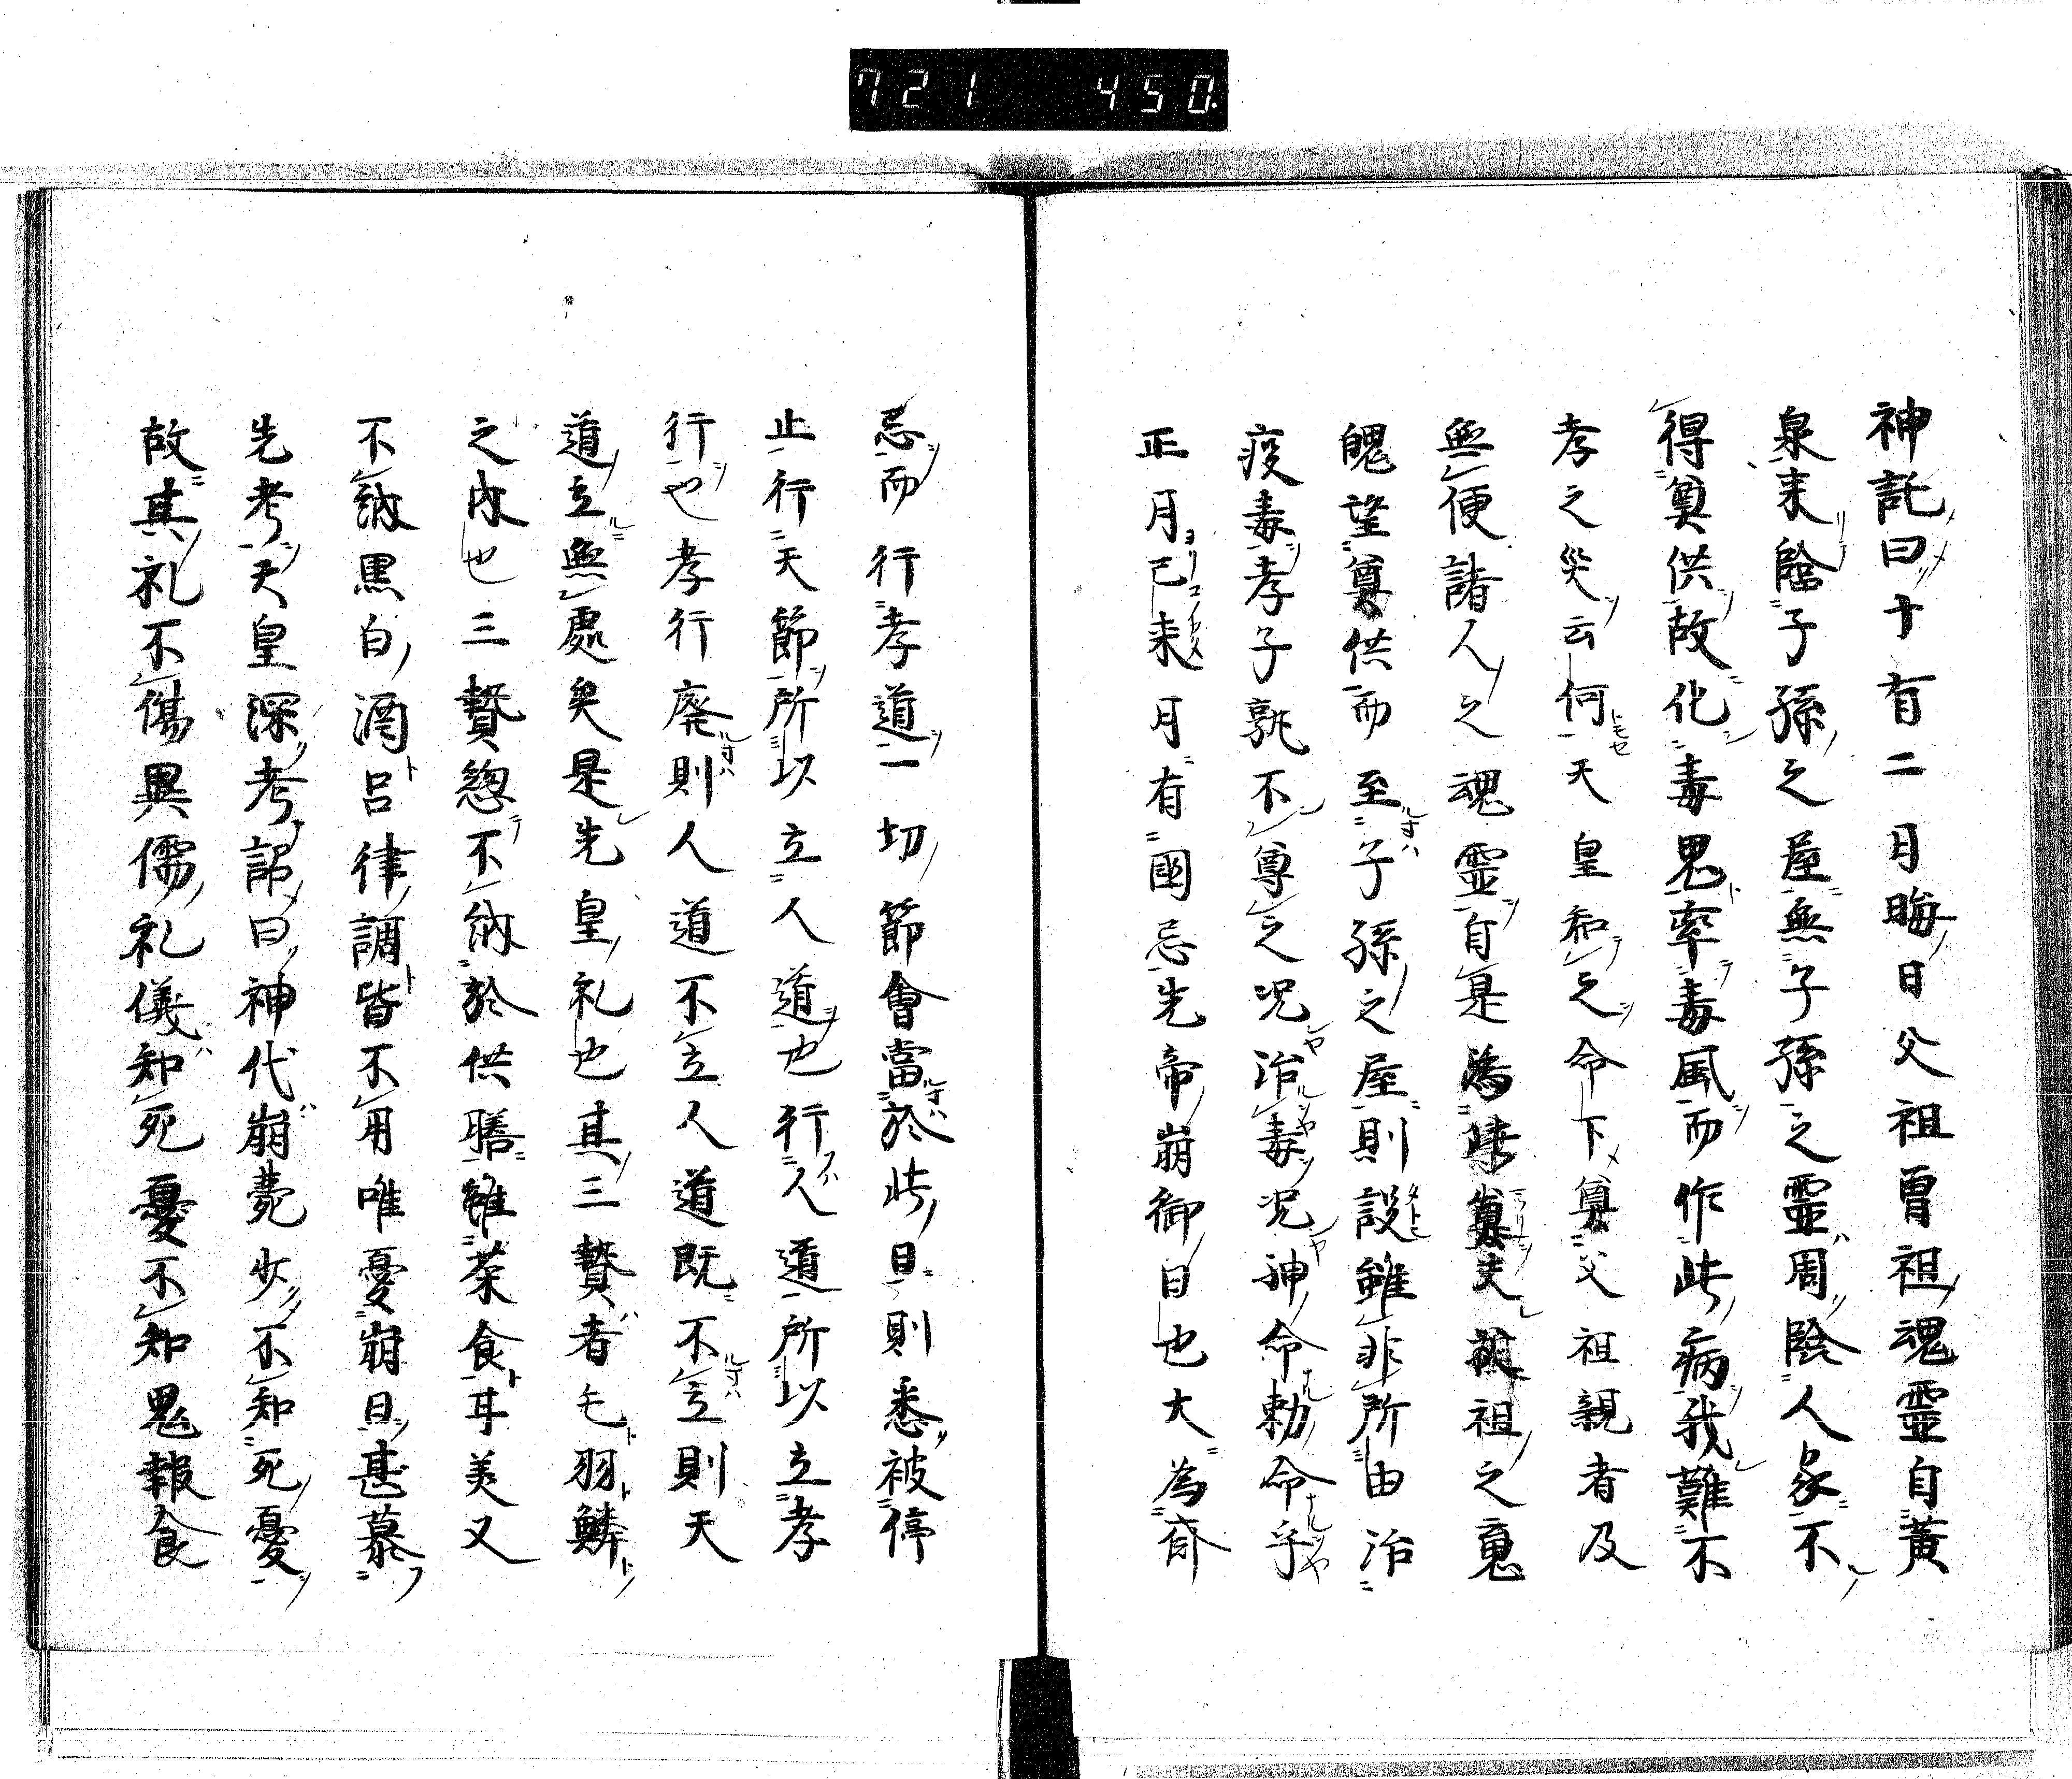 721 450.
神託曰十有二月晦日父祖曾祖魂靈自黃
泉来陰子孫之屋無子孫之靈周陰人家不
得奠供故化毒鬼率毒風而作此病我難不
孝之災云何天皇和之命下奠父祖親者及
無便諸人之魂靈自是為奠夫祖之鬼
魄望奠供而至子孫之屋則設雖非所由治
疫毒孝子孰不尊之况治毒况神命勅命乎
正月己来月有國忌先帝崩御日也大為齊
忌而行孝道一切節會當於此日則悉被停
止行天節所以立人道也行人道所以立孝
行也孝行廃則人道不立人道既不立則天
道立無處矣是先皇礼也其三贄者毛羽鱗
之内也三贄惣不納於供膳雖菜食耳美又
不納黒白酒呂律調皆不用唯憂崩日甚慕
先考天皇深考詔曰神代崩薨少不知死憂
故其礼不傷異儒礼儀知死憂不知鬼報食